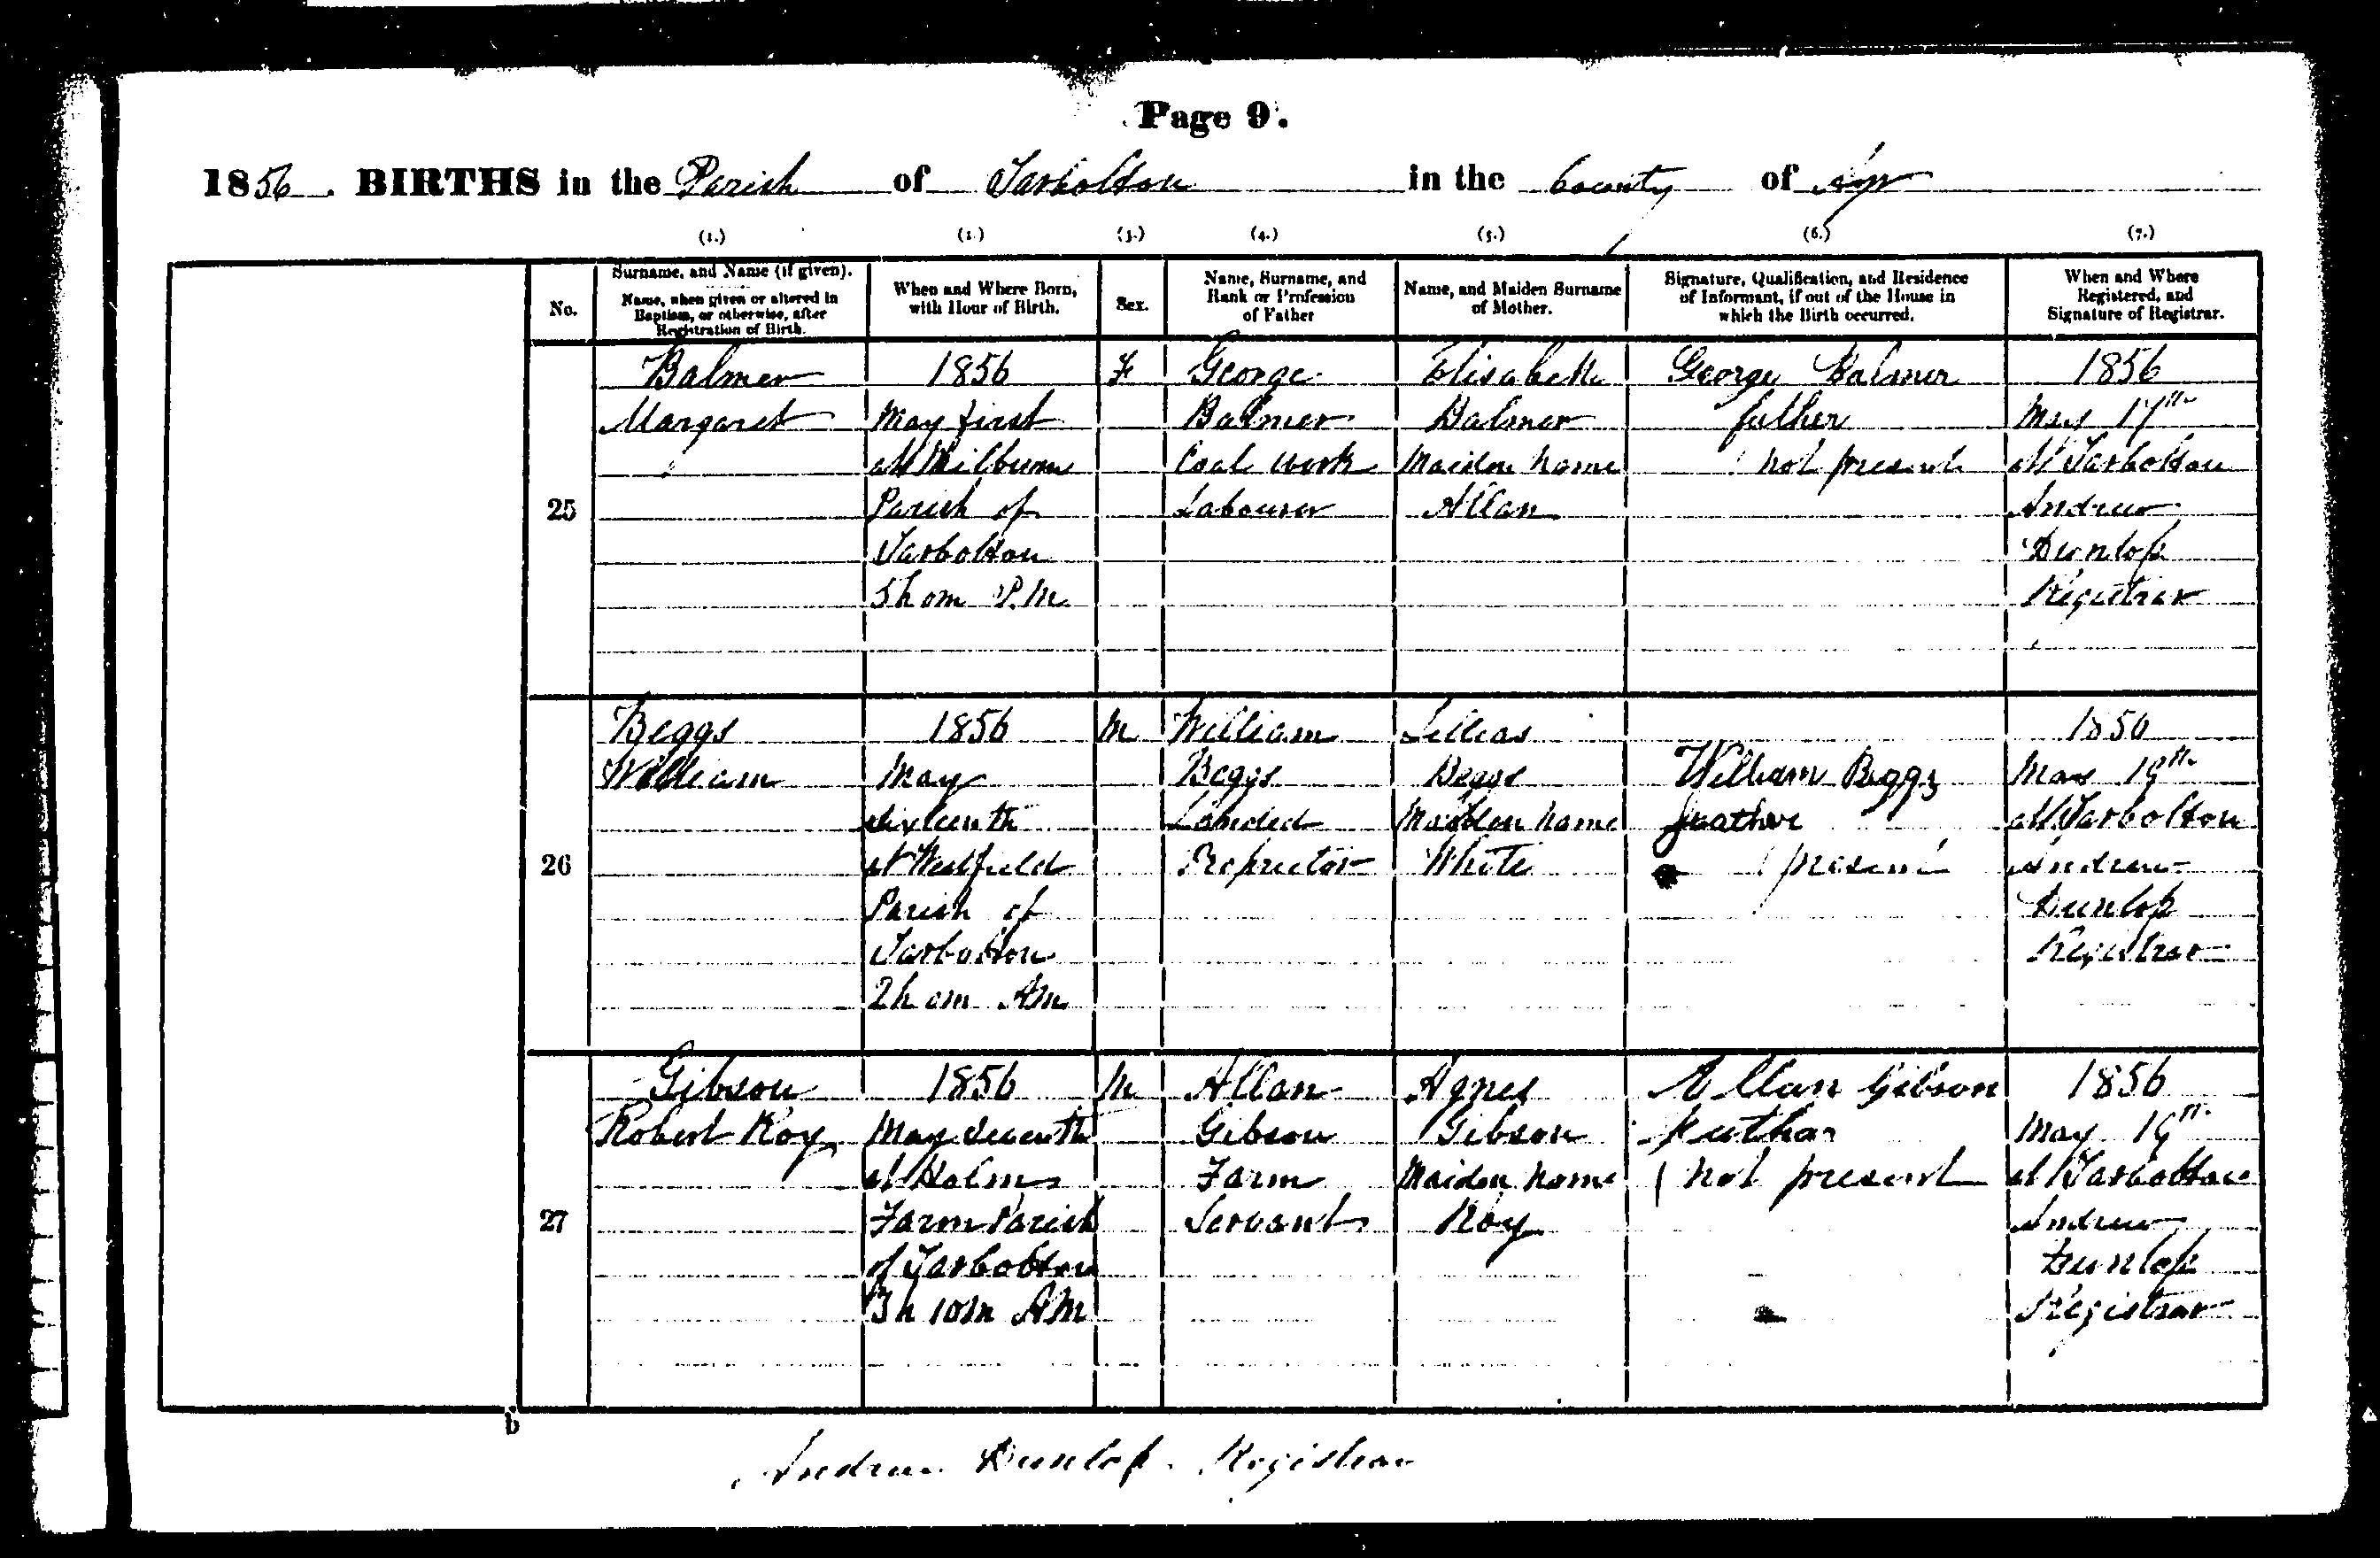 Page 9.
1856. BIRTHS in the Parish of Tarbolton in the County of Ayr
(1.) (2.) (3.) (4.) (5.) (6.) (7.)
No.
Surname, and Name (if given).
Name, when given or altered in
Baptism, or otherwise, after
Registration of Birth.
When and Where Born,
with Hour of Birth.
Sex.
Name, Surname, and
Rank or Profession
of Father
Name, and Maiden Surname
of Mother.
Signature, Qualification, and Residence
of Informant, if out of the House in
which the Birth occurred.
When and Where
Registered, and
Signature of Registrar.
25
Balmer
Margaret
1856
May first
at
Parish of
Tarbolton
5h 0m P.M.
F
George
Balmer
Coal work
Labourer
Elisabeth
Balmer
Maiden Name
Allan
George Balmer
father
not present
1856
May 17th
At Tarbolton
Andrew
Dunlop
Registrar
26
Beggs
William
1856
May
sixteenth
at Westfield
Parish of
Tarbolton
2h 0m AM
M
William
Beggs
Landed
Proprietor
Lillias
Beggs
Maiden Name
White
William Beggs
present
1856
May 19th
At Tarbolton
Andrew
Dunlop
Registrar
27
Gibson
Robert Roy
1856
May Seventh
at Holm
Farm Parish
of Tarbolton
3h 10m AM
M
Allan
Gibson
Farm
Servant
Agnes
Gibson
Maiden Name
Roy
Allan Gibson
Father
not present
1856
May 19th
At Tarbolton
Andrew
Dunlop
Registrar
b
Andrew Dunlop. Registrar